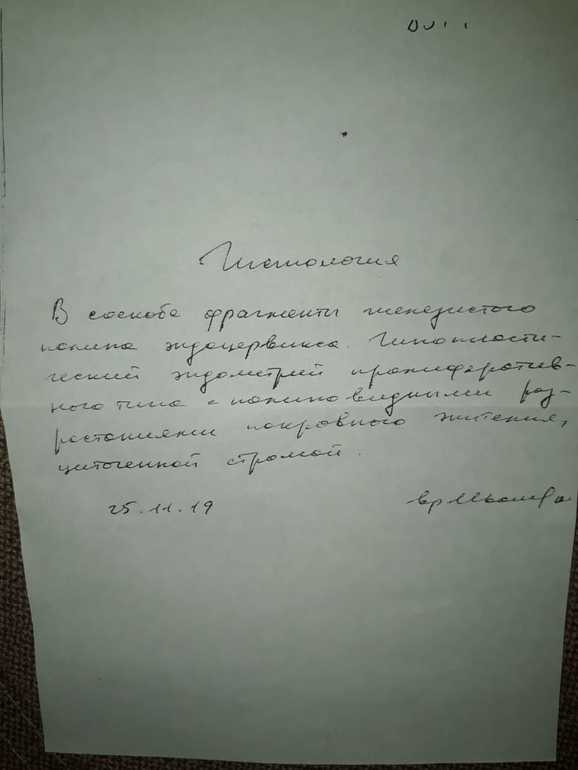 Гистология
В соскобе фрагменты железистого
полипа эндоцервикса. Гипопласти-
ческий эндометрий пролифератив-
ного типа с полиповидными раз-
растаниями покровного эпителия,
цитогенной стромой.
25.11.19 вр